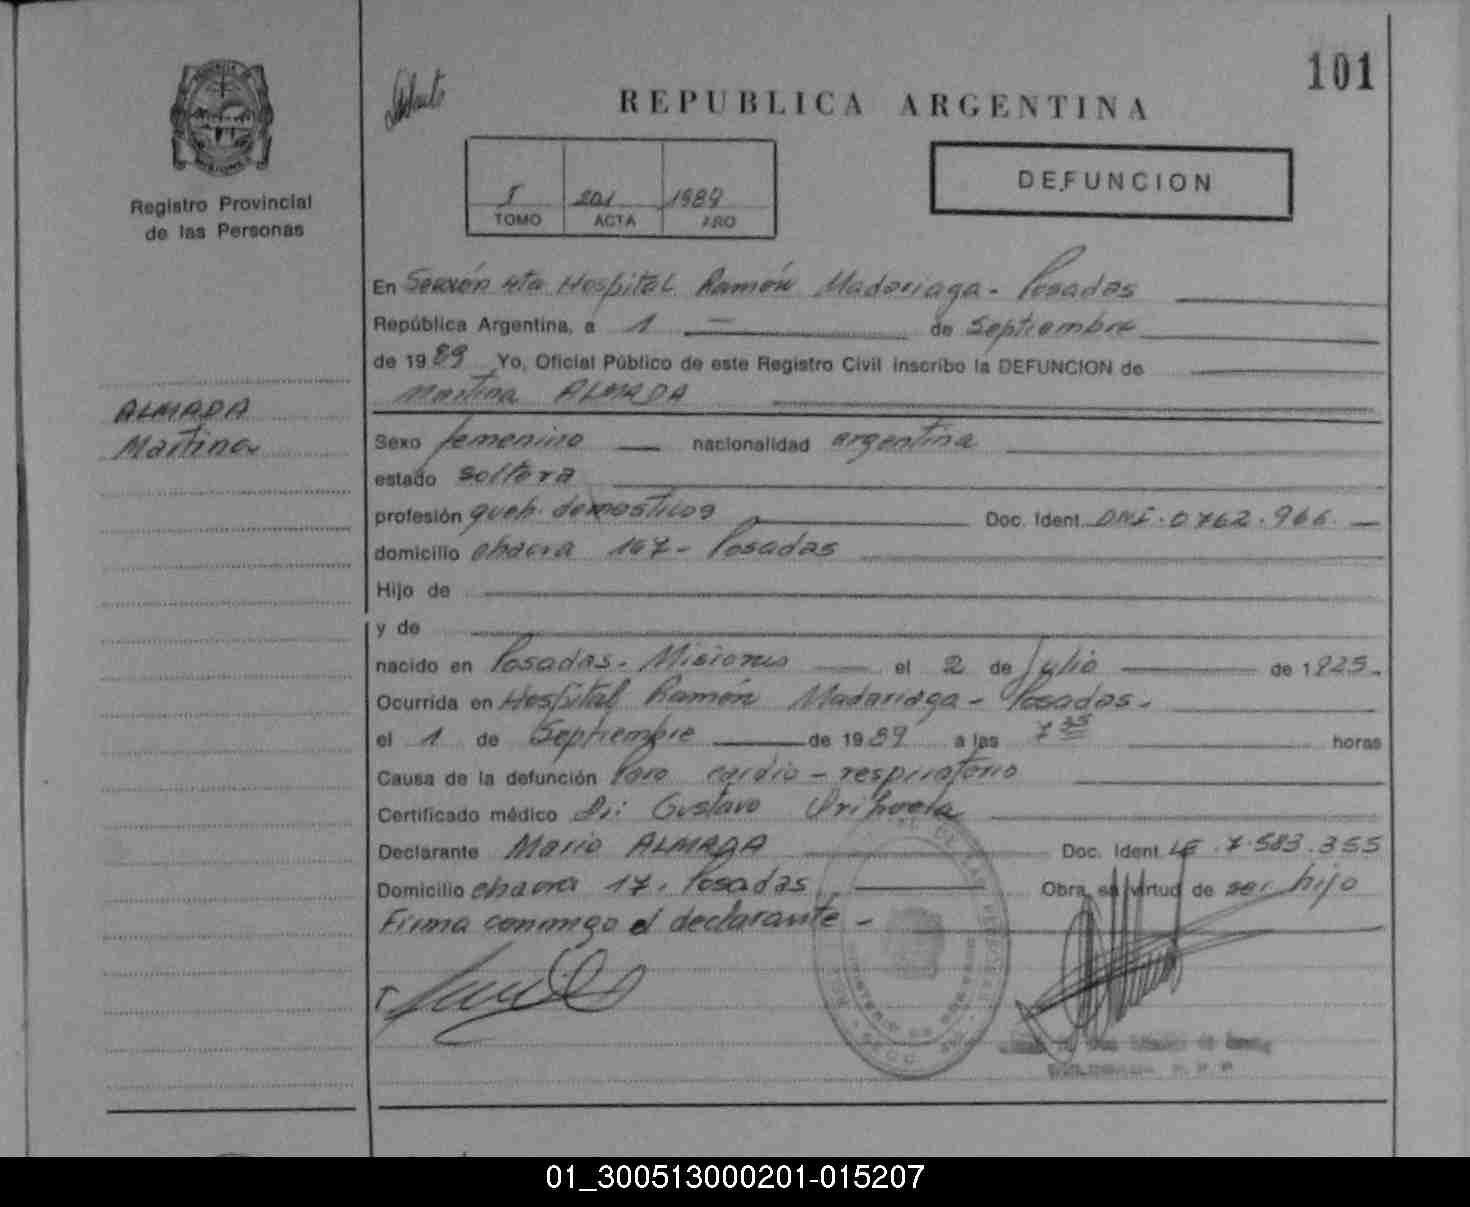 101
REPUBLICA ARGENTINA
DEFUNCION
I 201 1989
TOMO ACTA AÑO
Registro Provincial
de las Personas
ALMADA
Martina
En Sección 4ta Hospital Ramón Madariaga - Posadas
República Argentina, a 1 de Septiembre
de 1989 Yo, Oficial Público de este Registro Civil inscribo la DEFUNCION de
Martina ALMADA
Sexo femenino nacionalidad argentina
estado soltera
profesión queh. domesticos Doc. Ident. DNI. 0762.966.
domicilio chacra 167 - Posadas
Hijo de
y de
nacido en Posadas - Misiones el 2 de Julio de 1925.
Ocurrida en Hospital Ramón Madariaga - Posadas.
el 1 de Septiembre de 1989 a las 7 35 horas
Causa de la defunción Paro cardio - respiratorio
Certificado médico Dr: Gustavo Orihuela
Declarante Mario ALMADA Doc. Ident. LE. 7.583.355
Domicilio chacra 17. Posadas Obra en virtud de ser hijo
Firma conmigo el declarante -
01_300513000201-015207